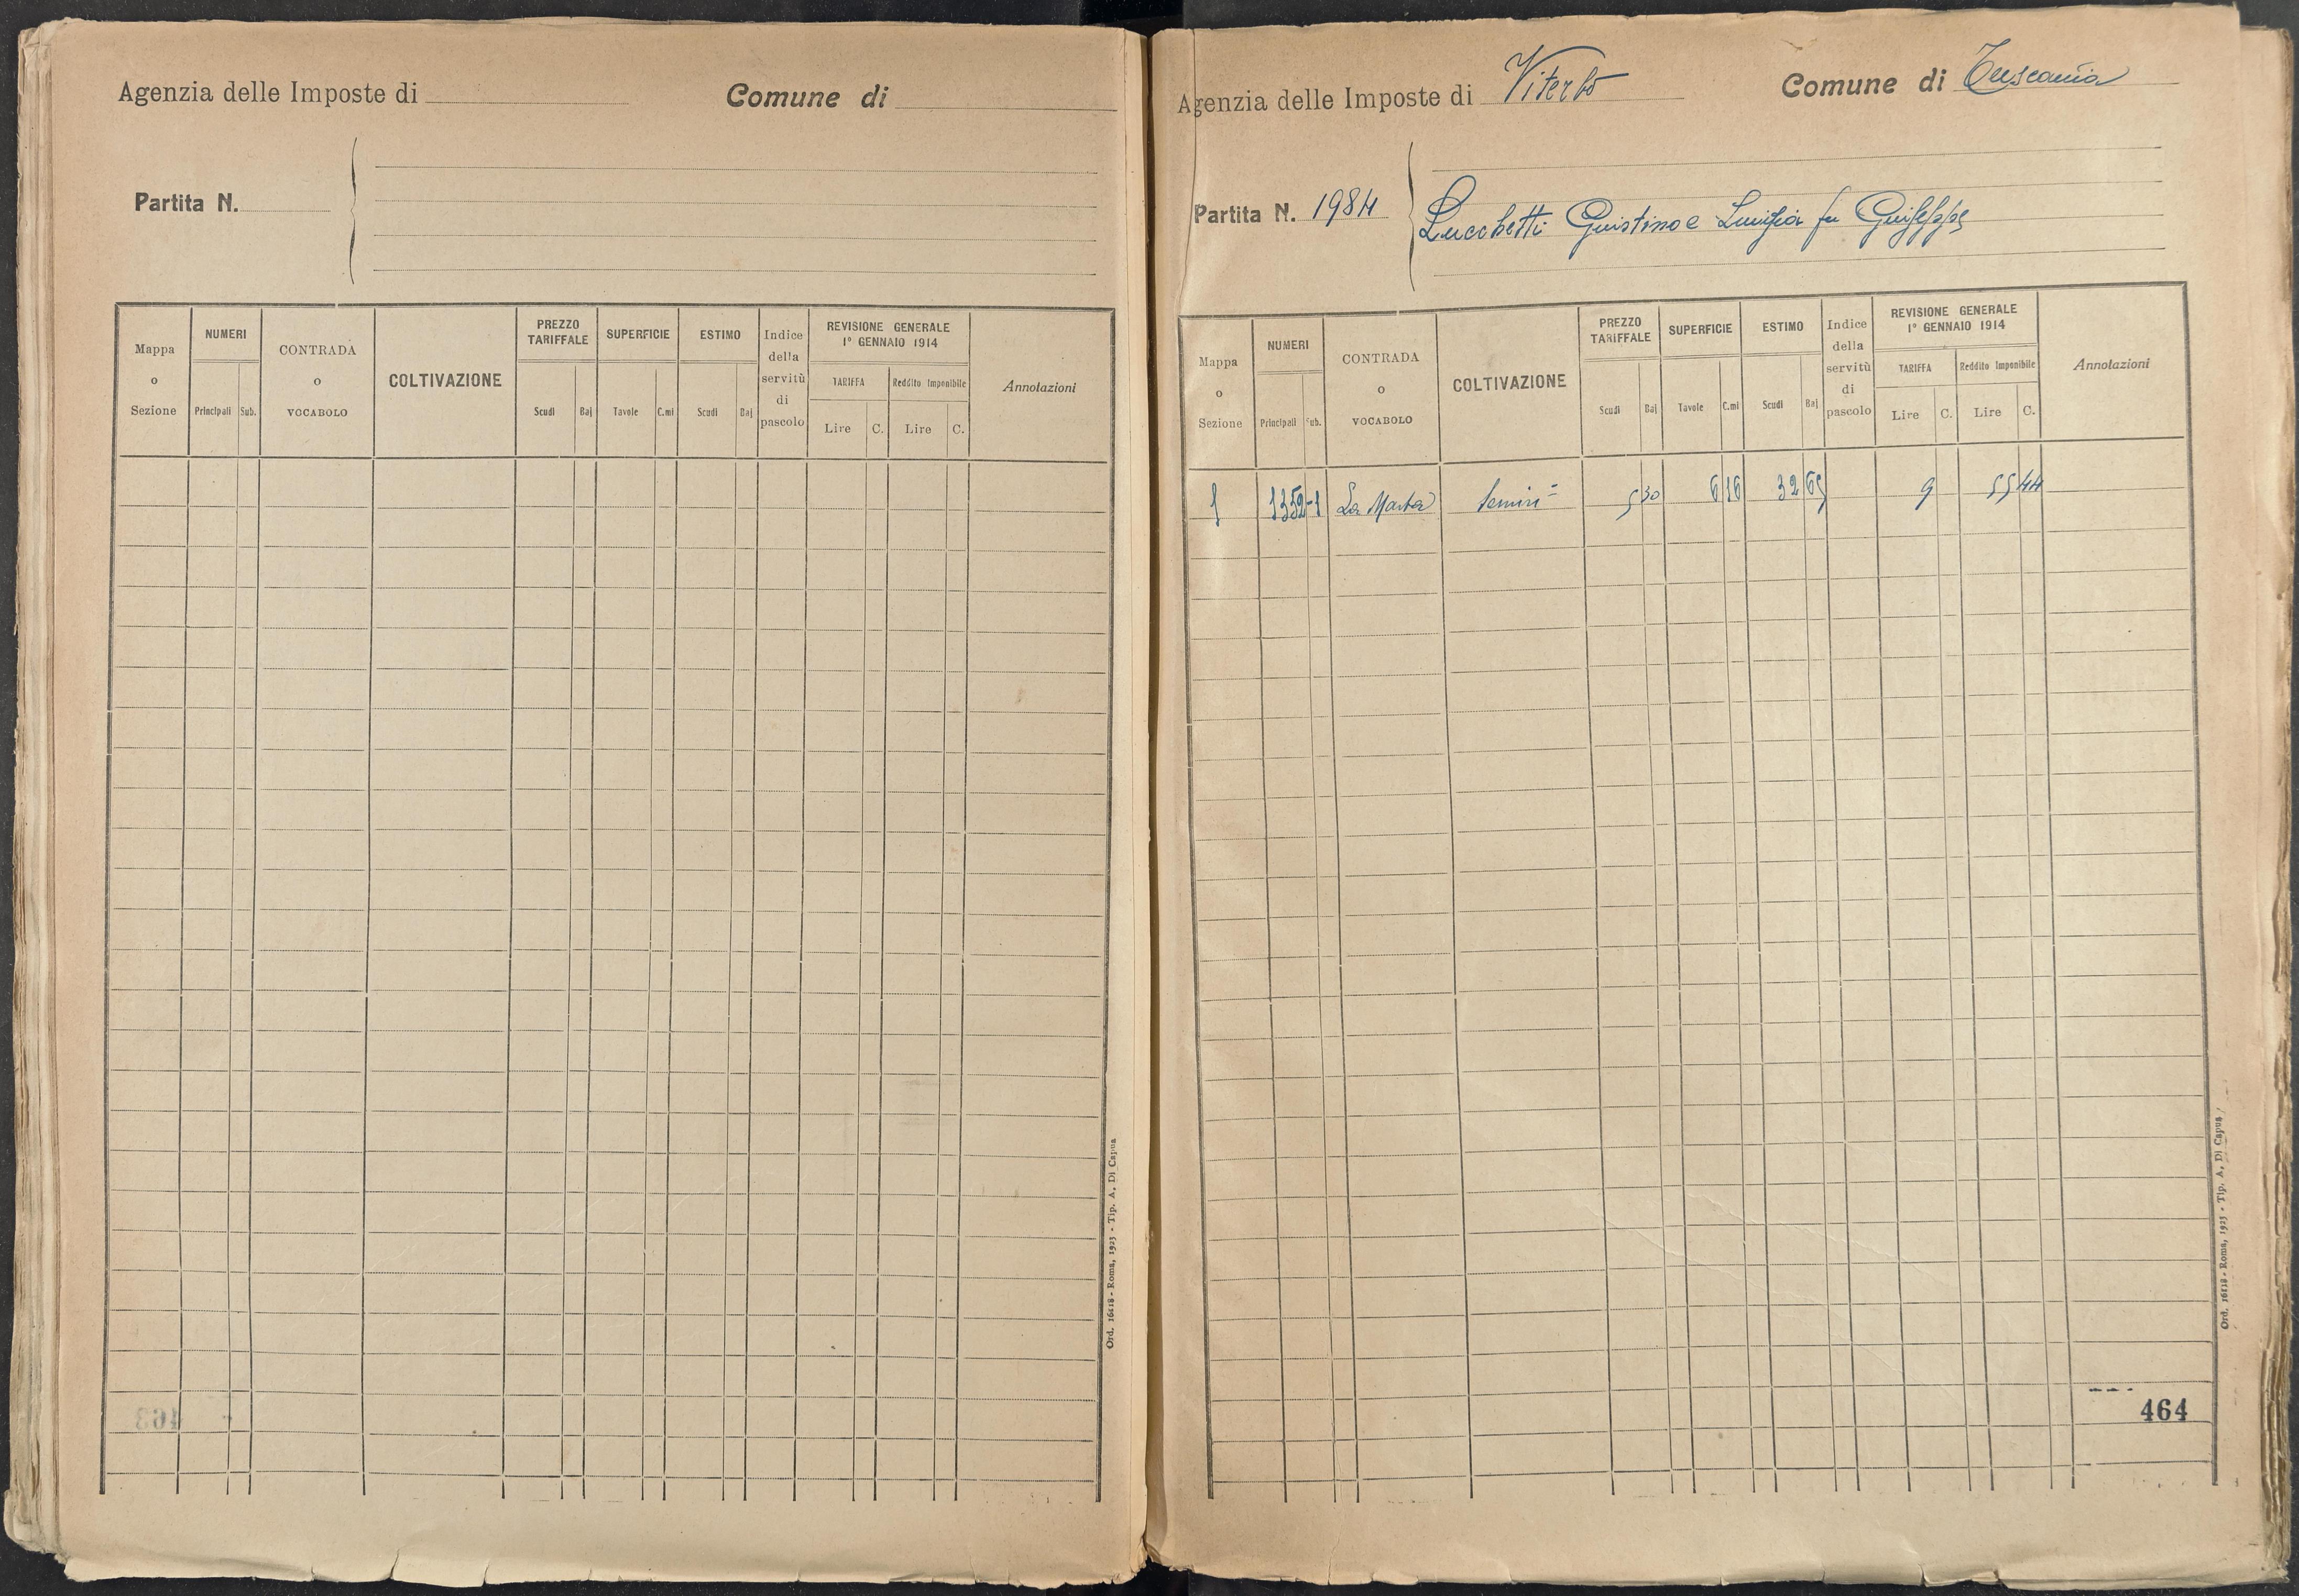 Agenzia delle Imposte di
Comune di
Partita N.
Mappa o Sezione
NUMERI
Principali Sub.
CONTRADA o VOCABOLO
COLTIVAZIONE
PREZZO TARIFFALE
Scudi Baj
SUPERFICIE
Tavole C.mi
ESTIMO
Scudi Baj
Indice della servitù di pascolo
REVISIONE GENERALE 1° GENNAIO 1914
TARIFFA
Lire C.
Reddito Imponibile
Lire C.
Annotazioni
Ord. 16118 - Roma, 1923 - Tip. A. Di Capua
Agenzia delle Imposte di Viterbo
Comune di Tuscania
Partita N. 1984
Lucchetti Giustino e Luigia fu Giuseppe
Mappa o Sezione
NUMERI
Principali Sub.
CONTRADA o VOCABOLO
COLTIVAZIONE
PREZZO TARIFFALE
Scudi Baj
SUPERFICIE
Tavole C.mi
ESTIMO
Scudi Baj
Indice della servitù di pascolo
REVISIONE GENERALE 1° GENNAIO 1914
TARIFFA
Lire C.
Reddito Imponibile
Lire C.
Annotazioni
1 1352-1 La Marta Semin= 5 30 6 16 32 65 9 55 44
464
Ord. 16118 - Roma, 1923 - Tip. A. Di Capua